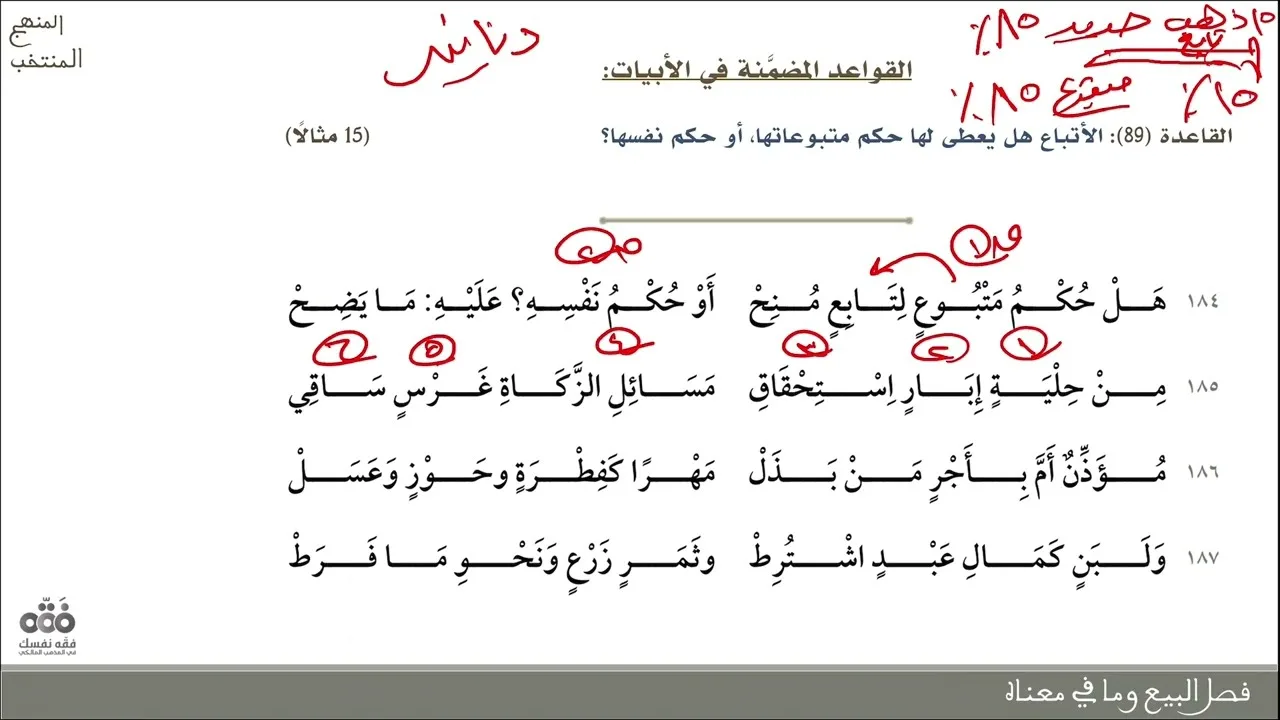 المنهج
المنتخب
١٥ ذهب حديد ٨٥٪
تابع
دنانير
١٥٪ متبوع ٨٥٪
القواعد المضمَّنة في الأبيات:
القاعدة (89): الأتباع هل يعطى لها حكم متبوعاتها، أو حكم نفسها؟ (15 مثالًا)
١ ٢
١٨٤ هَلْ حُكْمُ مَتْبُوعٍ لِتَابِعٍ مُنِحْ أَوْ حُكْمُ نَفْسِهِ؟ عَلَيْهِ: مَا يَضِحْ
١ ٢ ٣ ٤ ٥ ٦
١٨٥ مِنْ حِلْيَةٍ إِبَارٍ اِسْتِحْقَاقِ مَسَائِلِ الزَّكَاةِ غَرْسٍ سَاقِي
١٨٦ مُؤَذِّنٌ أَمَّ بِأَجْرٍ مَنْ بَذَلْ مَهْرًا كَفِطْرَةٍ وحَوْزٍ وَعَسَلْ
١٨٧ وَلَبَنٍ كَمَالِ عَبْدٍ اشْتُرِطْ وثَمَرٍ زَرْعٍ وَنَحْوِ مَا فَرَطْ
فقه
فقه نفسك
في المذهب المالكي
فصل البيع وما في معناه